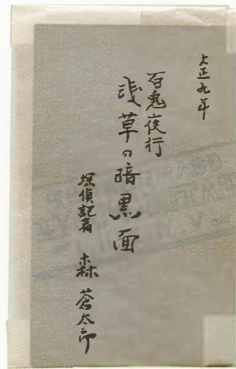 大正九年
百鬼夜行
浅草の暗黒面
探偵記者 森蒼太郎